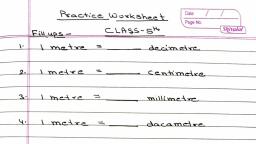 Practice Worksheet
Date / /
Page No.
CLASS-5th
Fill ups -
1. 1 metre = ______ decimetre
2. 1 metre = ______ centimetre
3. 1 metre = ______ millimetre
4. 1 metre = ______ dacametre